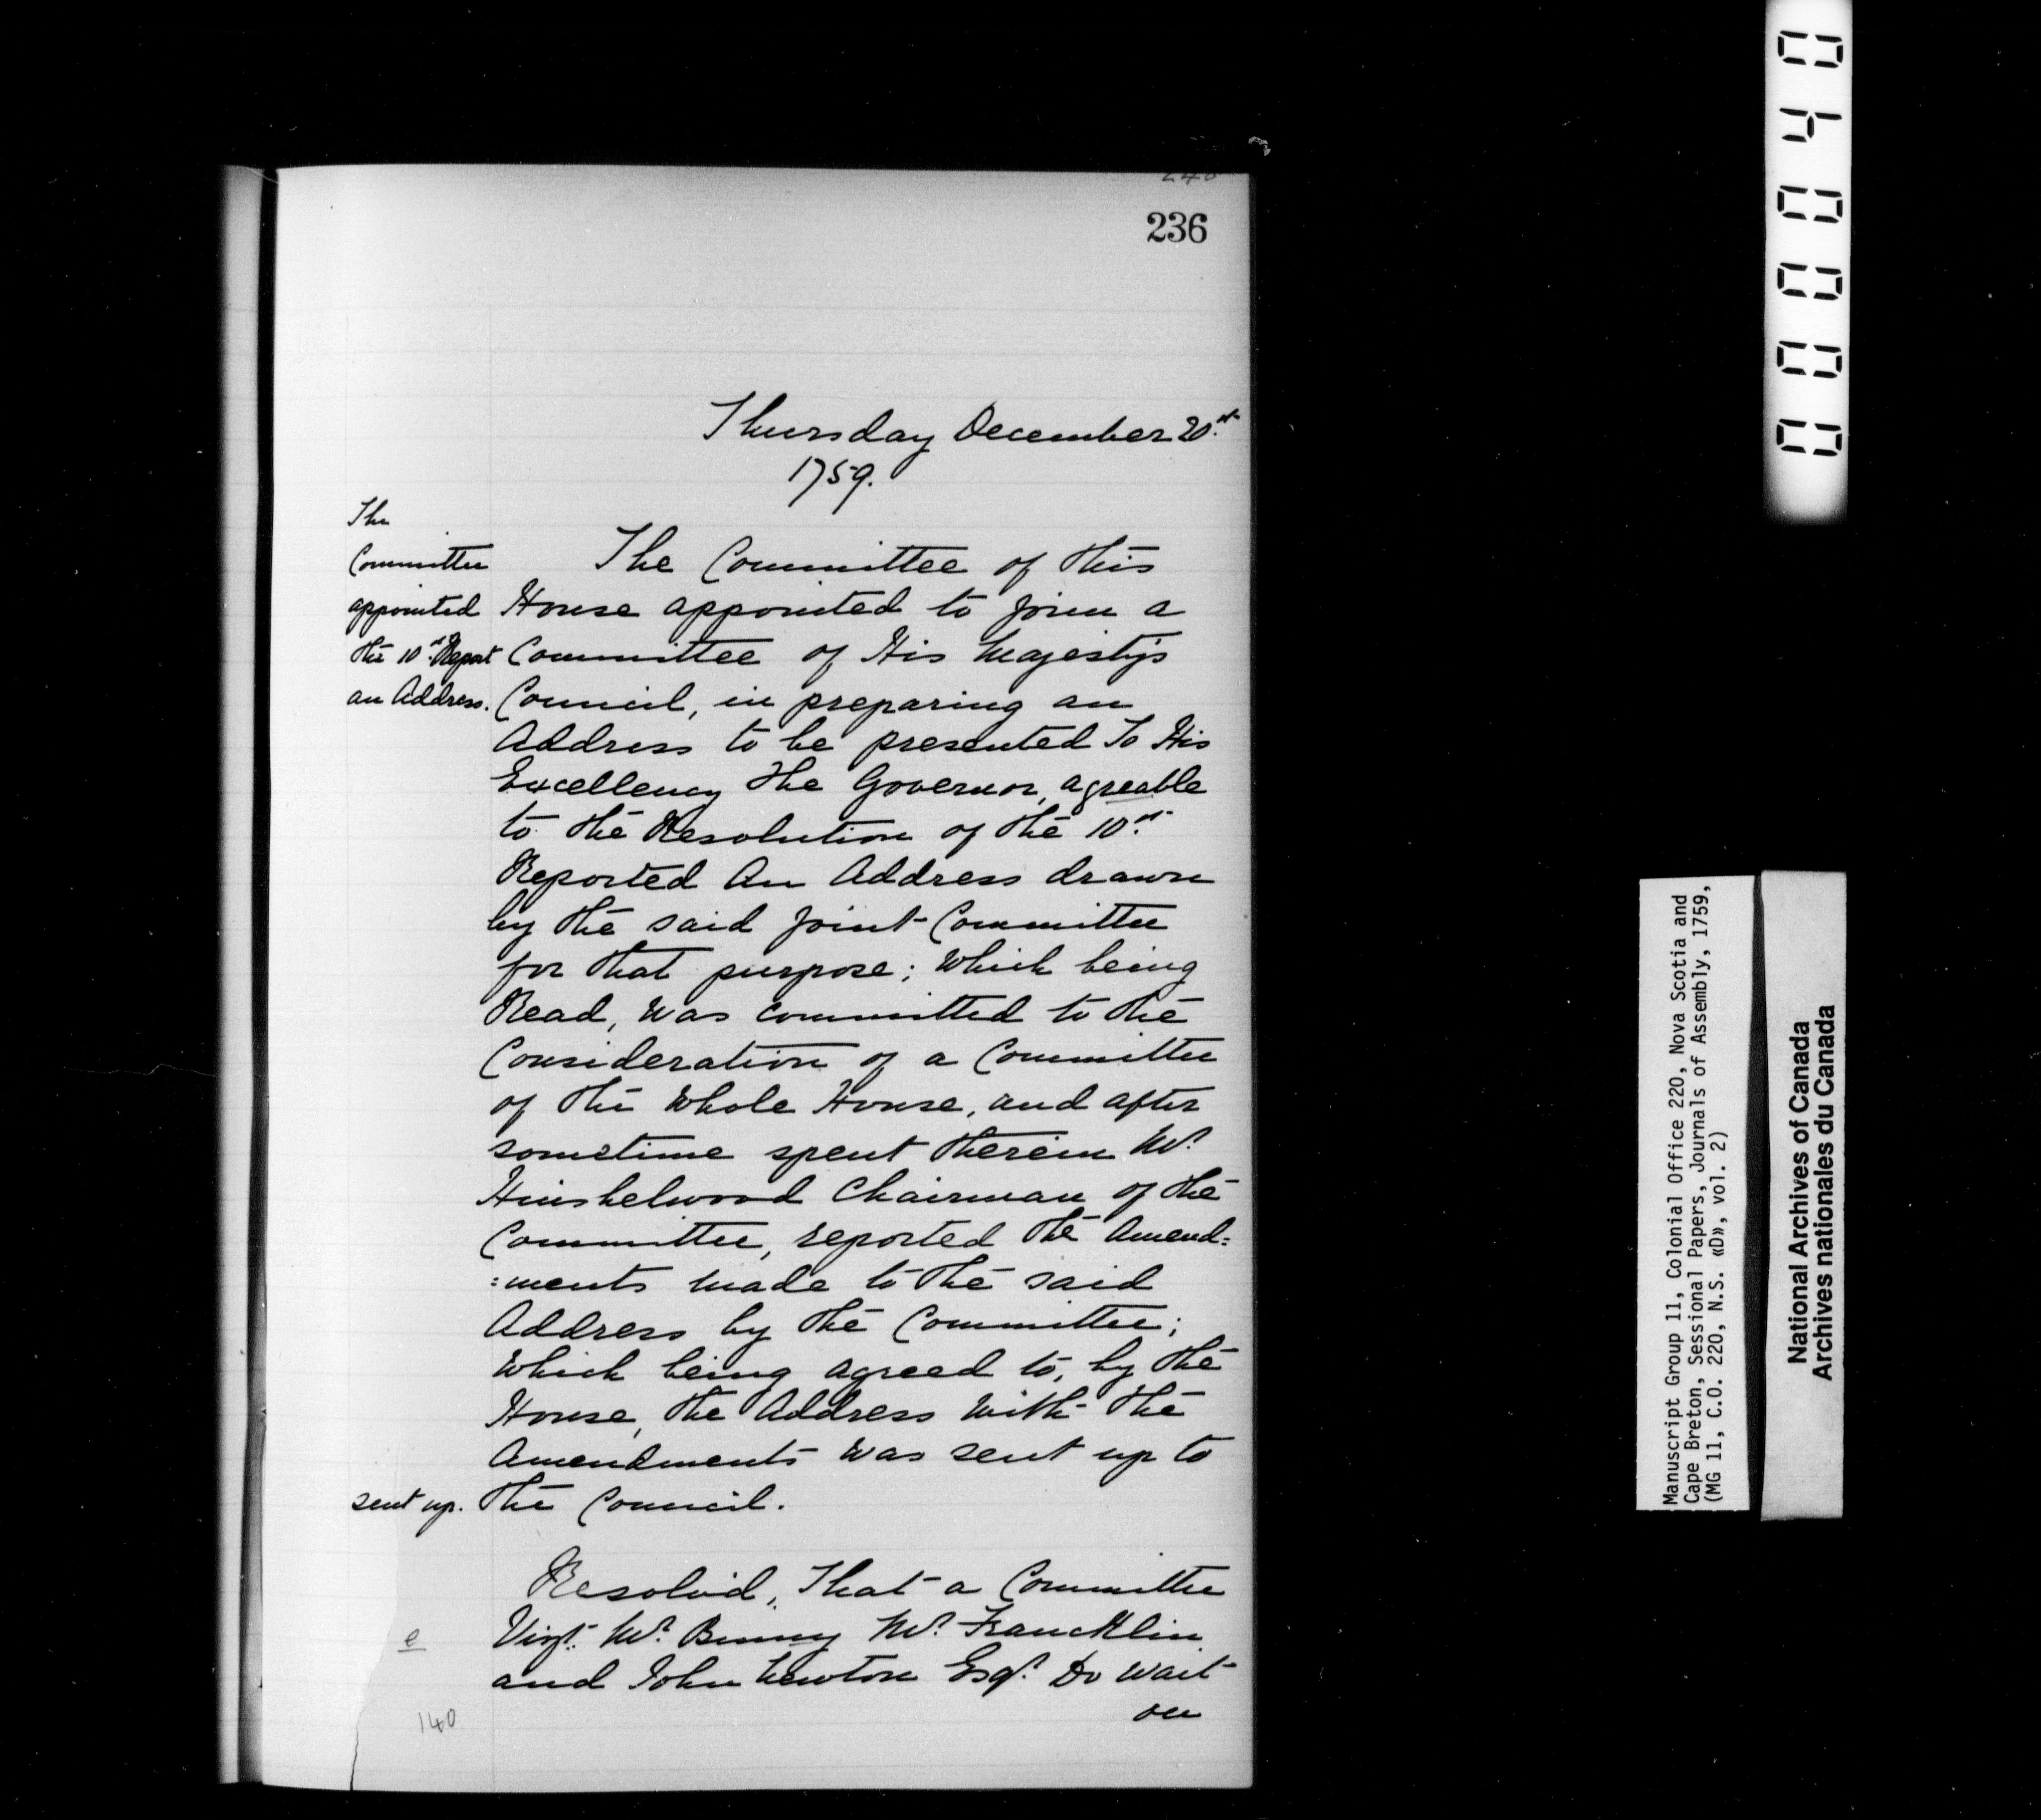 236
Thursday December 20th
1759.
The
Committee
appointed
the 10th Report
an Address.
The Committee of this
House appointed to join a
Committee of His Majestys
Council, in preparing an
Address to be presented To His
Excellency the Governor, agreable
to the Resolution of the 10th
Reported An Address drawn
by the said joint Committee
for that purpose; Which being
Read, Was Committed to the
Consideration of a Committee
of the Whole House, and after
sometime spent therein Mr.
Hinshelwood Chairman of the
Committee, reported the Amend=
=ments made to the said
Address by the Committee;
Which being agreed to, by the
House, the Address With the
Amendments Was sent up to
sent up. the Council.
Resolv'd, That a Committee
Vizt. Mr. Binney Mr. Francklin
and John Newton Esqr. Do Wait
on
e
140
0 4 0 0 0 0
Manuscript Group 11, Colonial Office 220, Nova Scotia and
Cape Breton, Sessional Papers, Journals of Assembly, 1759,
(MG 11, C.O. 220, N.S. «D», vol. 2)
National Archives of Canada
Archives nationales du Canada